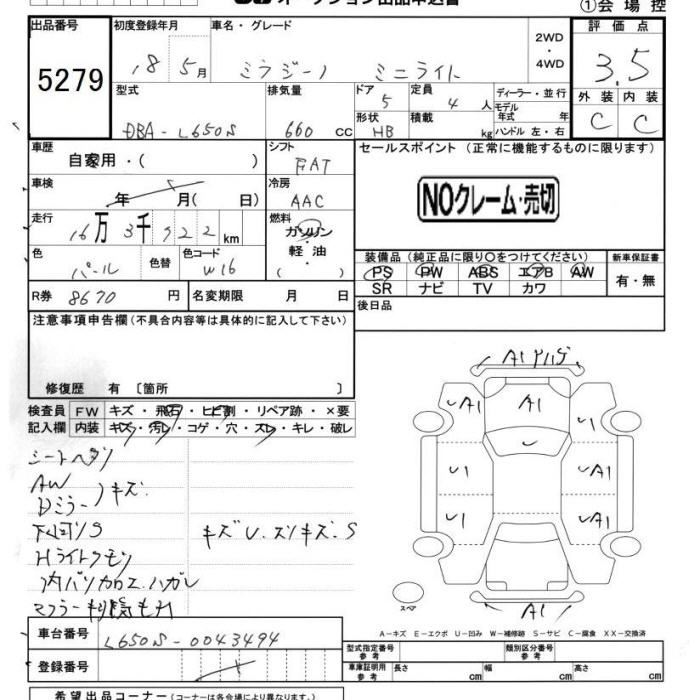 オークション出品申込書
①会場控
出品番号
5279
初度登録年月
18 5月
車名・グレード
ミラジーノ ミニライト
2WD・4WD
評価点
3.5
型式
DBA-L650S
排気量
660 cc
ドア
5
定員
4 人
ディーラー・並行
モデル年式 年
形状
HB
積載
kg
ハンドル 左・右
外装 内装
C C
車歴
自家用・( )
シフト
FAT
セールスポイント(正常に機能するものに限ります)
NOクレーム・売切
車検
年 月(日)
冷房
AAC
走行
16万 3千 922 km
燃料
ガソリン
軽・油
( )
色
パール
色替
色コード
W16
装備品(純正品に限り〇をつけてください)
新車保証書
PS PW ABS エアB AW
SR ナビ TV カワ
有・無
R券 8670 円
名変期限 月 日
後日品
注意事項申告欄(不具合内容等は具体的に記入して下さい)
修復歴 有 〔箇所 〕
検査員記入欄
FW キズ・飛石・ヒビ割・リペア跡・×要
内装 キズ・汚レ・コゲ・穴・スレ・キレ・破レ
シートヘタリ
AW
Dミラー キズ
下回りS
キズU.スリキズ.S
Hライトクモリ
内バリカロエ.ハガレ
A1
A1
A1
A1
U1
A1
U1
A1
A1
スペア
A-キズ E-エクボ U-凹み W-補修跡 S-サビ C-腐食 XX-交換済
車台番号
L650S-0043494
登録番号
型式指定番号 参考
類別区分番号 参考
車庫証明用 参考
長さ cm 幅 cm 高さ cm
希望出品コーナー(コーナーは各会場により異なります。)